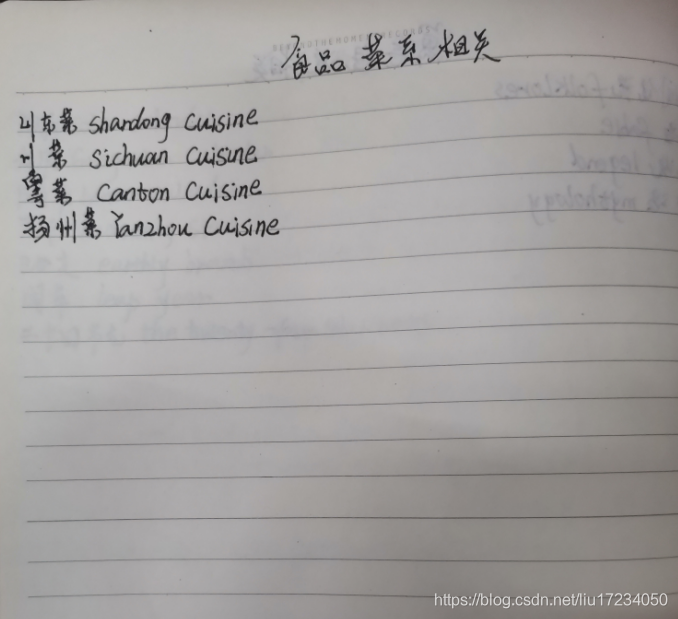 食品菜系相关
山东菜 Shandong Cuisine
川菜 Sichuan Cuisine
粤菜 Canton Cuisine
扬州菜 Yanzhou Cuisine
https://blog.csdn.net/liu17234050